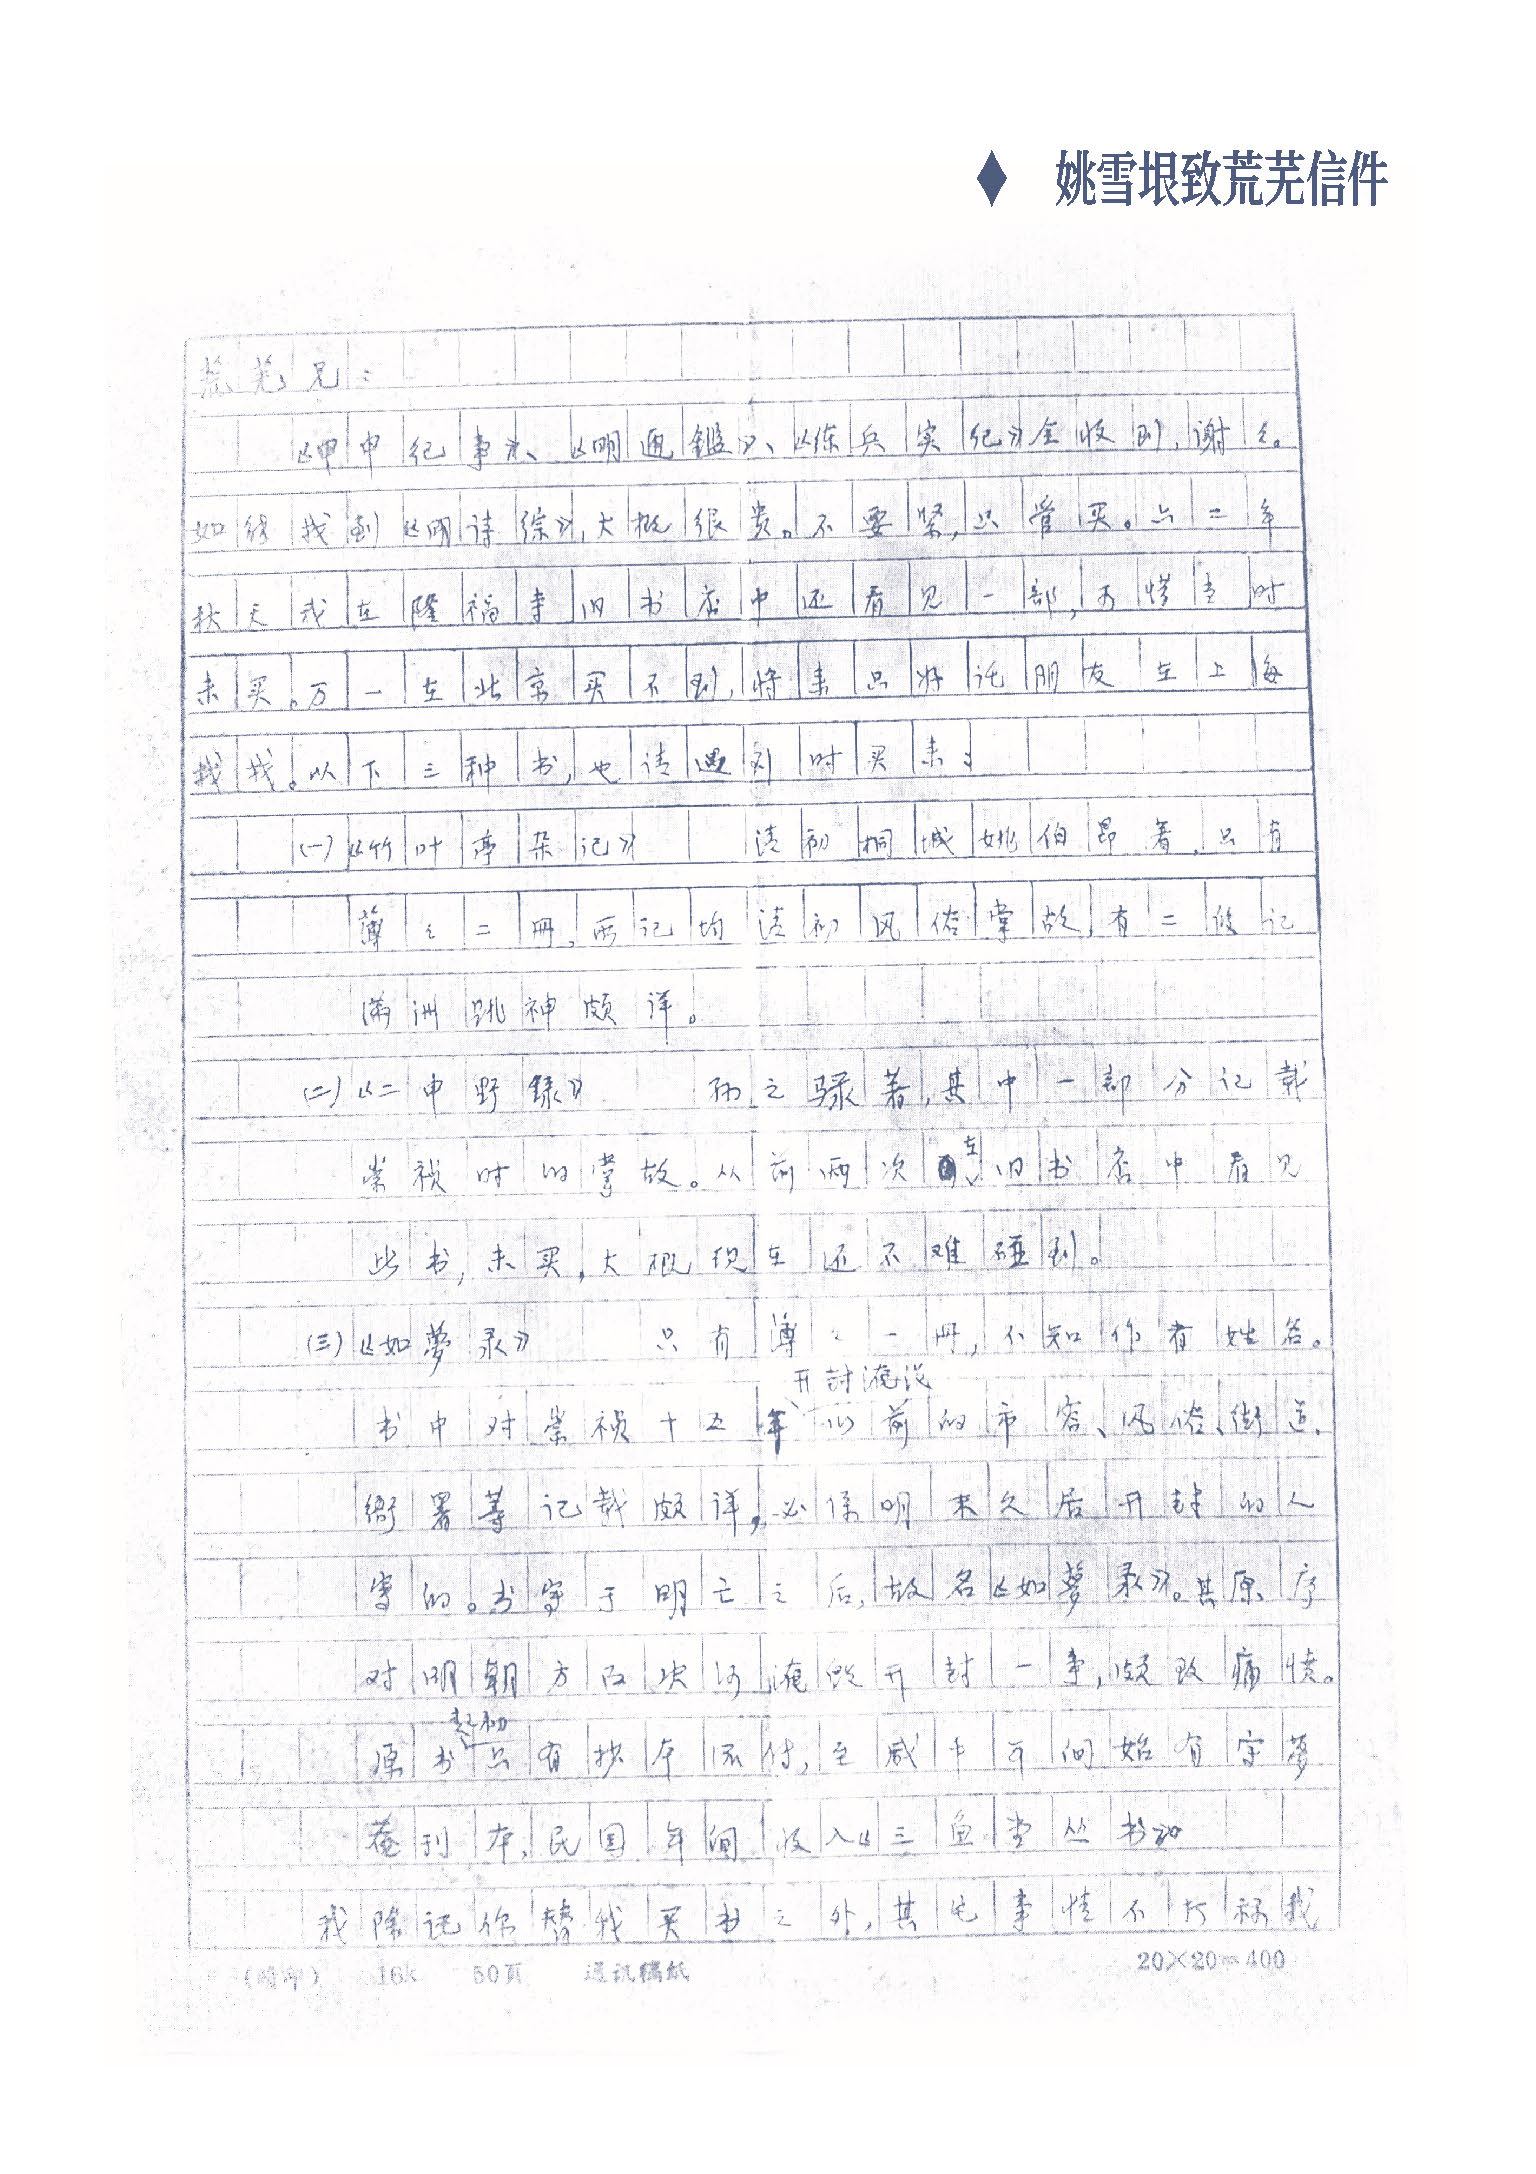 姚雪垠致荒芜信件
荒芜兄：
《甲申纪事》、《明通鑑》、《练兵实纪》全收到，谢々。
如能找到《明诗综》，大概很贵。不要紧，只管买。六二年
秋天我在隆福寺旧书店中还看见一部，可惜当时
未买。万一在北京买不到，将来只好托朋友在上海
找找。以下三种书，也请遇到时买来：
(一)《竹叶亭杂记》 清初桐城姚伯昂著，只有
薄々二册，所记均清初风俗掌故，有二段记
满洲跳神颇详。
(二)《二申野録》 孙之騄著，其中一部分记载
崇祯时的掌故。从前两次在旧书店中看见
此书，未买，大概现在还不难碰到。
(三)《如夢录》 只有薄々一册，不知作者姓名。
开封淹没
书中对崇祯十五年以前的市容、风俗、街道、
衙署等记载颇详，必係明末久居开封的人
写的。书写于明亡之后，故名《如夢录》。其原序
对明朝方面决河淹毁开封一事，颇致痛愤。
起初
原书只有抄本流传，至咸丰年间始有守夢
菴刊本，民国年间收入《三鱼堂丛书》。
我除记你替我买书之外，其它事情不打称我
16k 50页 通讯稿纸 20×20=400